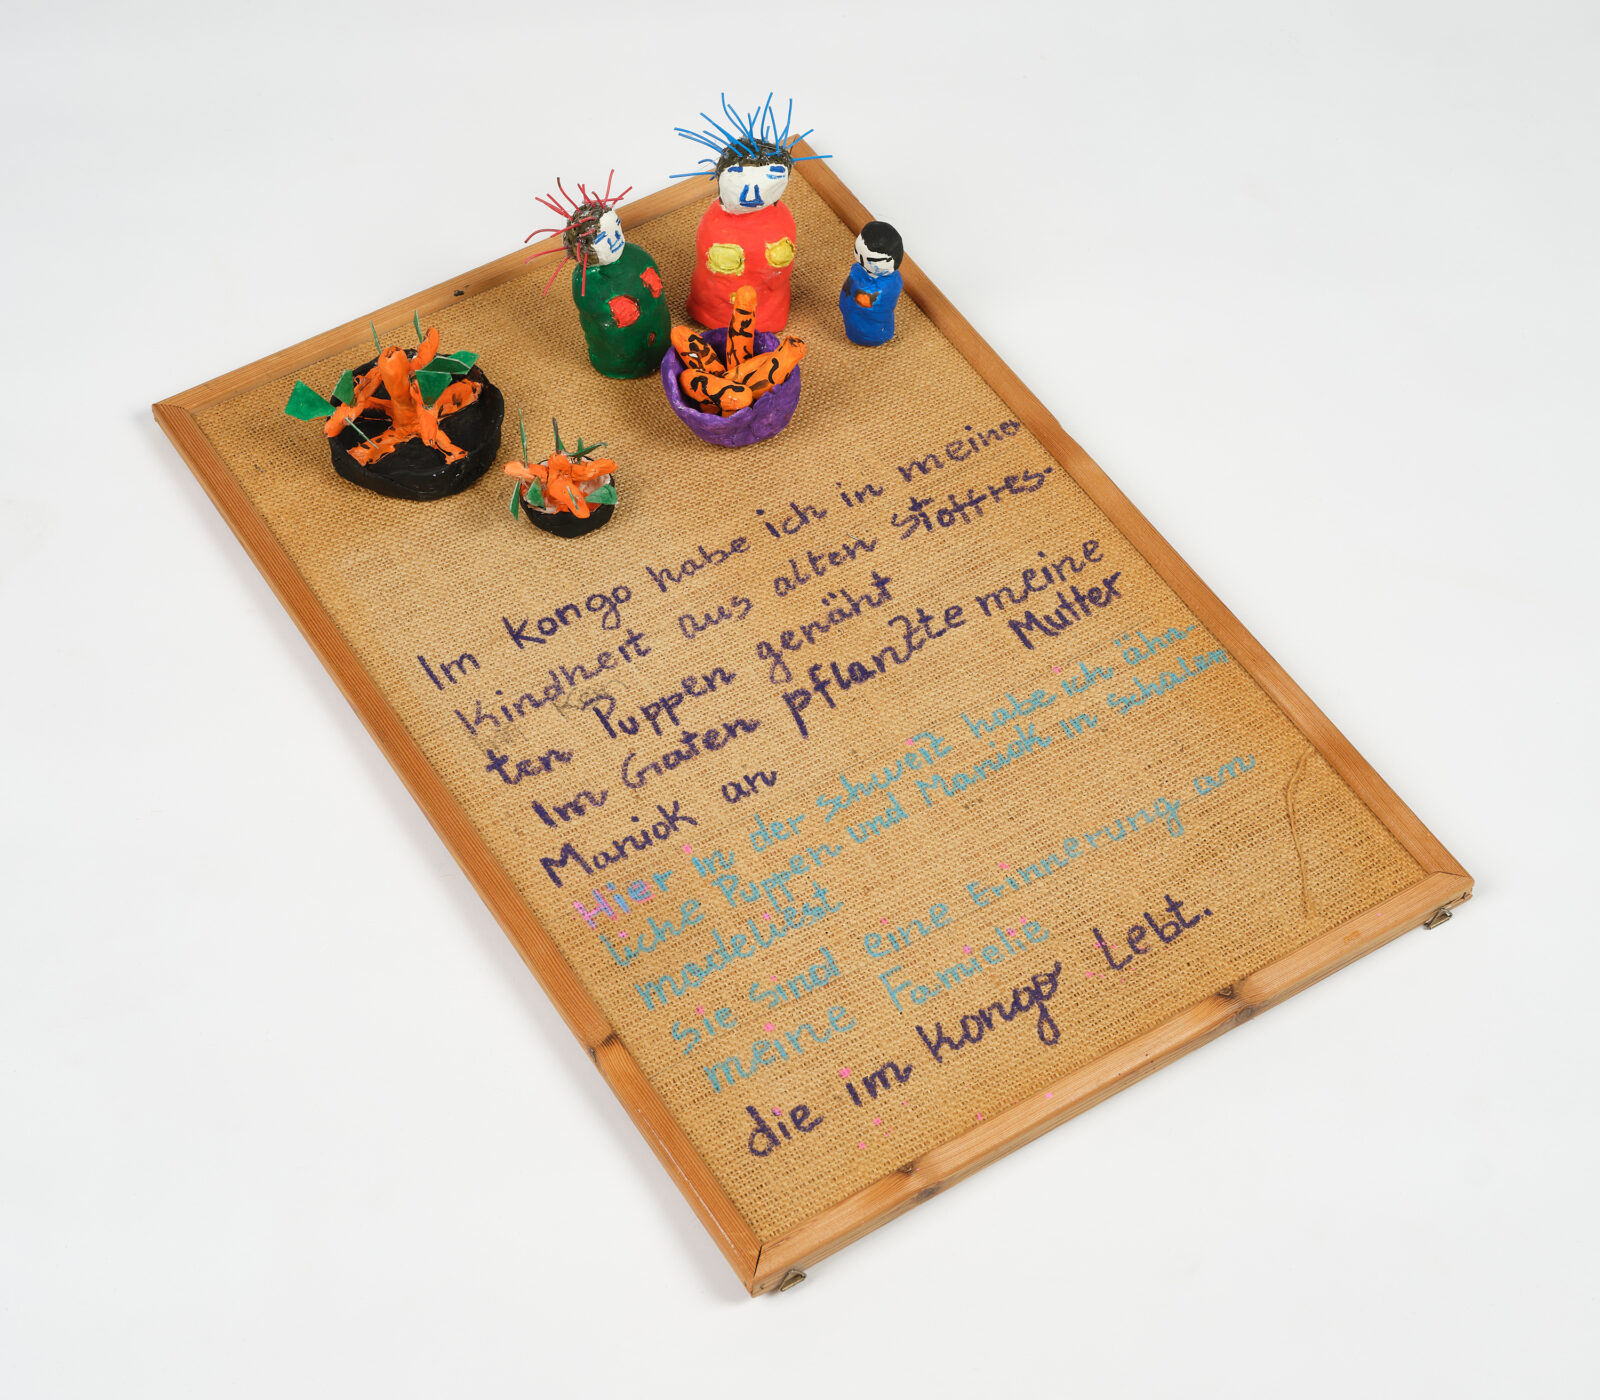 Im Kongo habe ich in meine
Kindheit aus alten Stoffres-
ten Puppen genäht
Im Graten pflanzte meine
Mutter
Maniok an
Hier in der schweiz habe ich ähn-
liche Puppen und Maniok in schalen
modeliest
sie sind eine Erinnerung an
meine Famielie
die im Kongo Lebt.